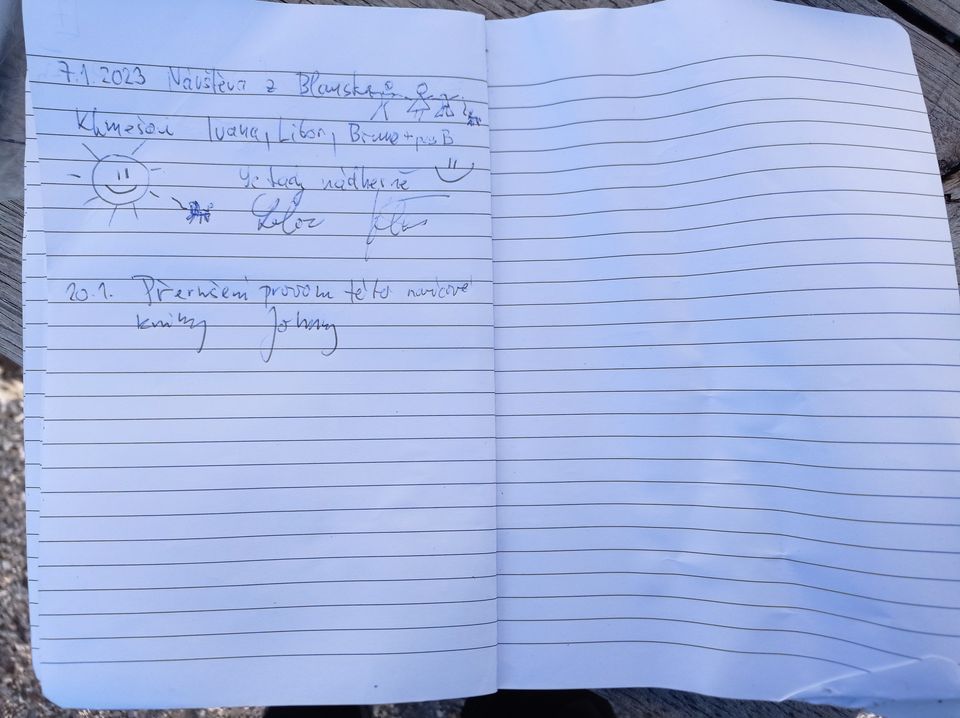 7.1.2023 Návštěva z Blanska
Ivana, Libor, Bruno + pes B
Je tady nádherně
20.1. Přerušení provozu této
knihy Johny